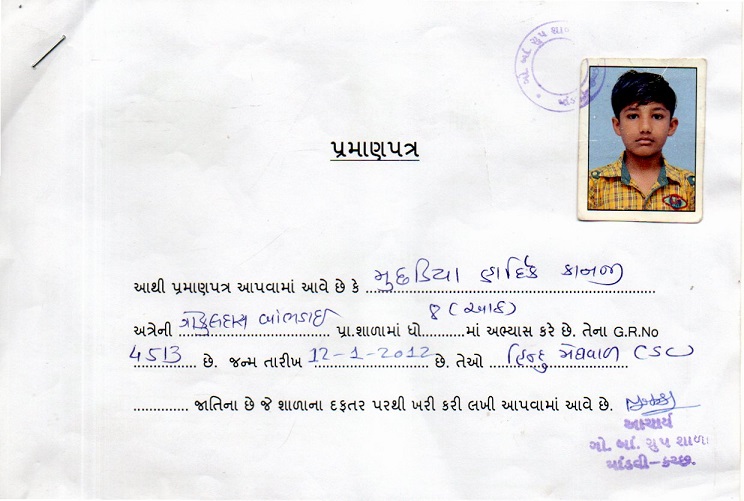 ગો. બાં. સુપ શાળા
પ્રમાણપત્ર
આથી પ્રમાણપત્ર આપવામાં આવે છે કે મુછડિયા હાર્દિક કાનજી
અત્રેની ગોકુલદાસ બાંભડાઈ પ્રા.શાળામાં ધો. ૪ (આઠ) માં અભ્યાસ કરે છે. તેના G.R.No
4513 છે. જન્મ તારીખ 12-1-2012 છે. તેઓ હિન્દુ મેઘવાળ (SC)
જાતિના છે જે શાળાના દફતર પરથી ખરી કરી લખી આપવામાં આવે છે.
આચાર્ય
ગો. બાં. સુપ શાળા
માંડવી-કચ્છ.